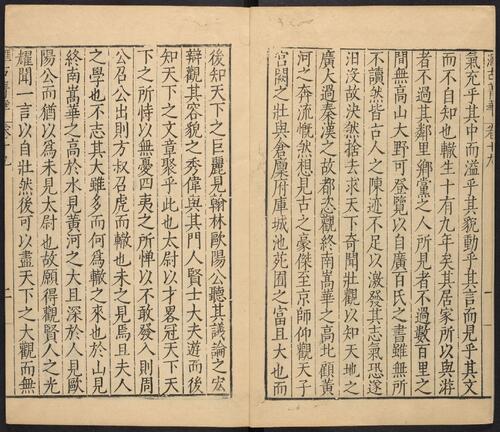 氣充乎其中而溢乎其貌動乎其言而見乎其文
而不自知也轍生十有九年矣其居家所以與游
者不過其鄰里鄉黨之人所見者不過數百里之
間無高山大野可登覽以自廣百氏之書雖無所
不讀然皆古人之陳迹不足以激發其志氣恐遂
汨没故決然捨去求天下奇聞壯觀以知天地之
廣大過秦漢之故都恣觀終南嵩華之高北顧黃
河之奔流慨然想見古之豪傑至京師仰觀天子
宮闕之壯與倉廩府庫城池苑囿之富且大也而
後知天下之巨麗見翰林歐陽公聽其議論之宏
辯觀其容貌之秀偉與其門人賢士大夫遊而後
知天下之文章聚乎此也太尉以才畧冠天下天
下之所恃以無憂四夷之所憚以不敢發入則周
公召公出則方叔召虎而轍也未之見焉且夫人
之學也不志其大雖多而何為轍之來也於山見
終南嵩華之高於水見黃河之大且深於人見歐
陽公而猶以為未見太尉也故願得觀賢人之光
耀聞一言以自壯然後可以盡天下之大觀而無